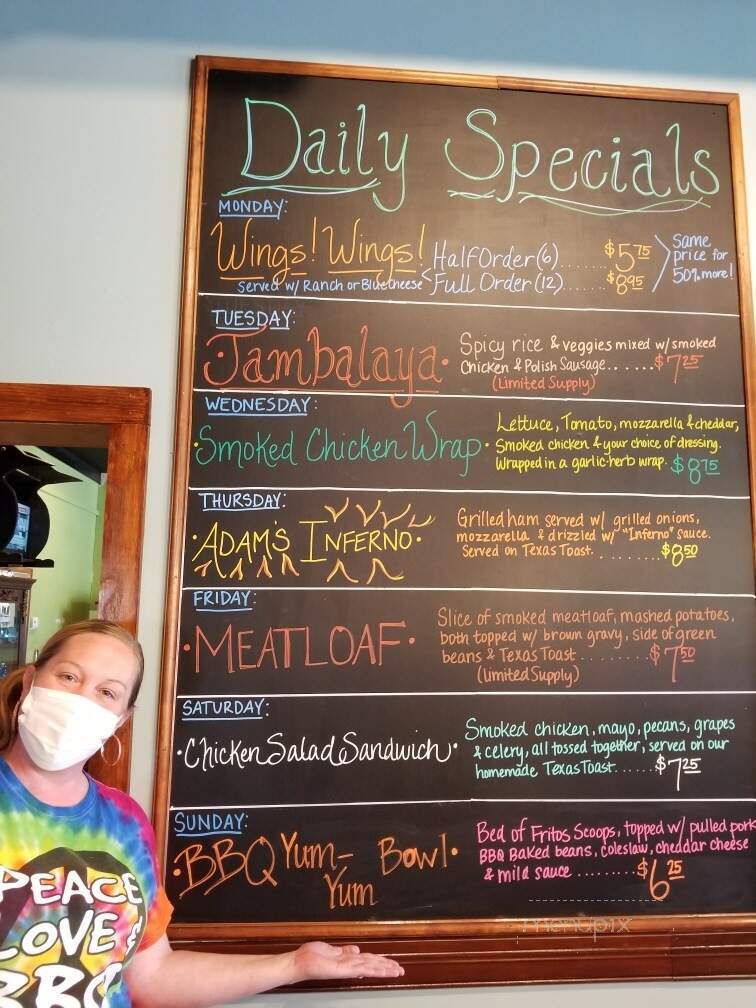 Daily Specials
MONDAY:
Wings! Wings! Half Order (6)...... $5.75
served w/ Ranch or Bluecheese Full Order (12)...... $8.95
Same
price for
50% more!
TUESDAY:
•Jambalaya• Spicy rice & veggies mixed w/ smoked
Chicken & Polish Sausage.. .....$7.25
(Limited Supply)
WEDNESDAY:
•Smoked Chicken Wrap• Lettuce, Tomato, mozzarella & cheddar,
Smoked chicken & your choice of dressing.
Wrapped in a garlic-herb wrap. $8.75
THURSDAY:
•ADAM'S INFERNO• Grilled ham served w/ grilled onions,
mozzarella & drizzled w/ "Inferno" sauce.
Served on Texas Toast.........$8.50
FRIDAY:
•MEATLOAF• Slice of smoked meatloaf, mashed potatoes,
both topped w/ brown gravy, side of green
beans & Texas Toast..........$7.50
(Limited Supply)
SATURDAY:
•Chicken Salad Sandwich• Smoked chicken, mayo, pecans, grapes
& celery, all tossed together, served on our
homemade Texas Toast......$7.25
SUNDAY:
•BBQ Yum-Yum Bowl• Bed of Fritos Scoops, topped w/ pulled pork
BBQ Baked beans, coleslaw, cheddar cheese
& mild sauce.........$6.25
PEACE
LOVE &
BBQ
menupix